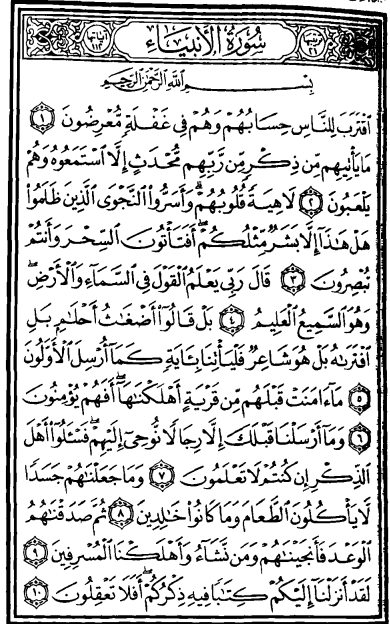 سُورَةُ الأَنبِيَاء
بِسْمِ اللَّهِ الرَّحْمَٰنِ الرَّحِيمِ
اقْتَرَبَ لِلنَّاسِ حِسَابُهُمْ وَهُمْ فِي غَفْلَةٍ مُعْرِضُونَ ۝١
مَا يَأْتِيهِم مِّن ذِكْرٍ مِّن رَّبِّهِم مُّحْدَثٍ إِلَّا اسْتَمَعُوهُ وَهُمْ
يَلْعَبُونَ ۝٢ لَاهِيَةً قُلُوبُهُمْ ۗ وَأَسَرُّوا النَّجْوَى الَّذِينَ ظَلَمُوا
هَلْ هَٰذَا إِلَّا بَشَرٌ مِّثْلُكُمْ ۖ أَفَتَأْتُونَ السِّحْرَ وَأَنتُمْ
تُبْصِرُونَ ۝٣ قَالَ رَبِّي يَعْلَمُ الْقَوْلَ فِي السَّمَاءِ وَالْأَرْضِ ۖ
وَهُوَ السَّمِيعُ الْعَلِيمُ ۝٤ بَلْ قَالُوا أَضْغَاثُ أَحْلَامٍ بَلِ
افْتَرَاهُ بَلْ هُوَ شَاعِرٌ فَلْيَأْتِنَا بِآيَةٍ كَمَا أُرْسِلَ الْأَوَّلُونَ
۝٥ مَا آمَنَتْ قَبْلَهُم مِّن قَرْيَةٍ أَهْلَكْنَاهَا ۖ أَفَهُمْ يُؤْمِنُونَ
۝٦ وَمَا أَرْسَلْنَا قَبْلَكَ إِلَّا رِجَالًا نُّوحِي إِلَيْهِمْ ۖ فَسْئَلُوا أَهْلَ
الذِّكْرِ إِن كُنتُمْ لَا تَعْلَمُونَ ۝٧ وَمَا جَعَلْنَاهُمْ جَسَدًا
لَّا يَأْكُلُونَ الطَّعَامَ وَمَا كَانُوا خَالِدِينَ ۝٨ ثُمَّ صَدَقْنَاهُمُ
الْوَعْدَ فَأَنجَيْنَاهُمْ وَمَن نَّشَاءُ وَأَهْلَكْنَا الْمُسْرِفِينَ ۝٩
لَقَدْ أَنزَلْنَا إِلَيْكُمْ كِتَابًا فِيهِ ذِكْرُكُمْ ۖ أَفَلَا تَعْقِلُونَ ۝١٠